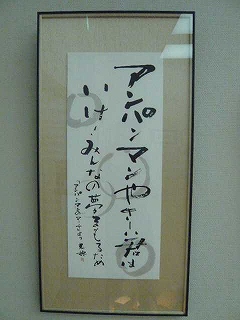 アンパンマンやさしい君は
いけ!みんなの夢まもるため
「アンパンマンのマーチ」より